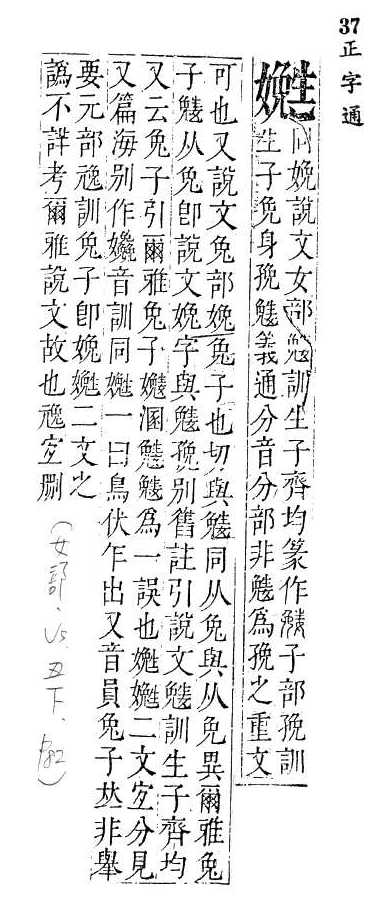 37正字通
同娩說文女部嬎訓生子齊均篆作子部㝃訓
生子免身㝃嬎義通分音分部非嬎為㝃之重文
可也又說文兔部娩兔子也切與嬎同从兔與从免異爾雅兔
子嬎从兔卽說文娩字與嬎㝃別舊註引說文嬎訓生子齊均
又云兔子引爾雅兔子嬎溷嬎嬎為一誤也嬎嬎二文宐分見
又篇海別作音訓同嬎一曰鳥伏乍出又音員兔子𠀤非舉
要元部訓兔子卽娩嬎二文之
譌不詳考爾雅說文故也宐刪
(女部．VS.丑下．p82)